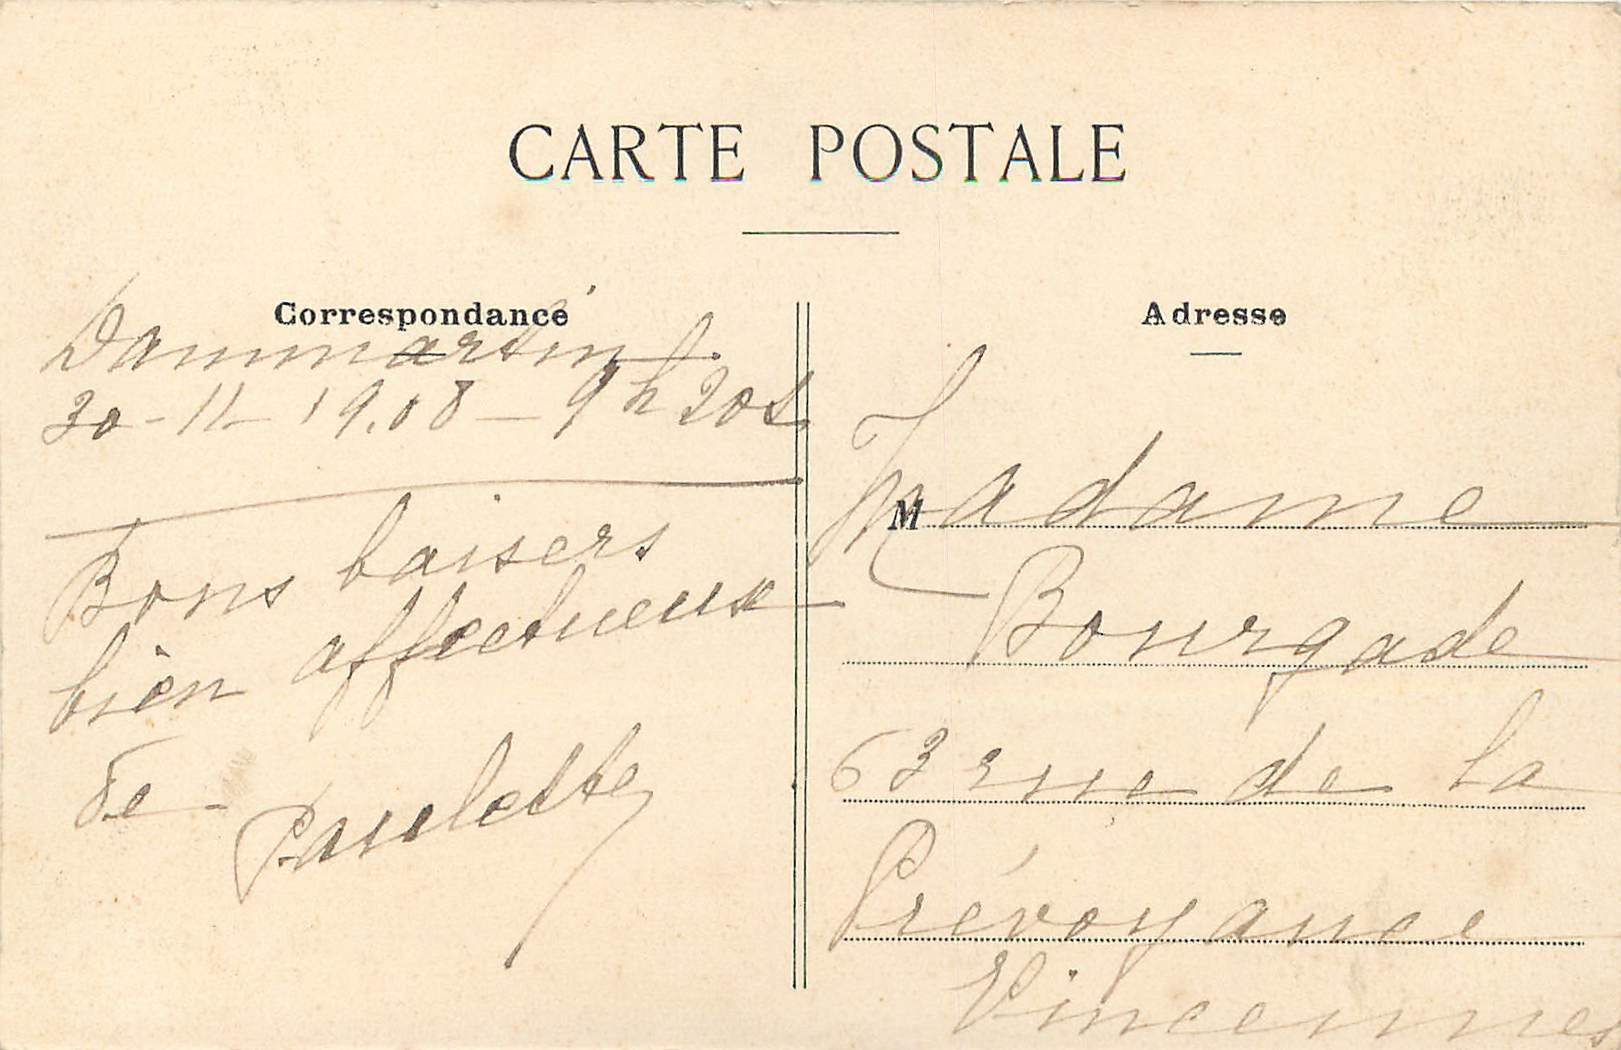 CARTE POSTALE
Correspondance
Dammartin
30-11-1908-9h20s
Bons baisers
bien affectueux
de
Paulette
Adresse
M
Madame
Bourgade
63 rue de la
Prévoyance
Vincennes